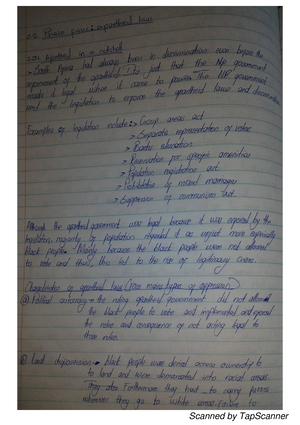 2.2 apartheid law
2.2.1 Apartheid in a nutshell
> South Africa has always been in discrimination even before the
apartheid. It's just that the NP government
made it legal when it came to power. The NP government
used the legislation to enforce the apartheid laws and discrimination
Examples of legislation include:> Group areas act
> Separate representation of voters
> Bantu education
> Reservation for separate amenities
> Population registration act
> Prohibition of mixed marriages
> Suppression of communism act
Although the apartheid government was legal because it was enforced by the
legislation, majority of population regarded it as unjust more especially
black people. Mainly because the black people were not allowed
to vote and thus, this led to the rise of legitimacy crisis.
Characteristics of apartheid law (
a) Political autocracy → the ruling apartheid government did not allowed
the black people to vote and implemented and enforced
the rules and consequence of not acting legal to
those rules.
b) Land dispossession → black people were denied access ownership to
to land and were demarcated into racial areas.
They also Furthermore they had to carry passes
whenever they go to white areas
Scanned by TapScanner